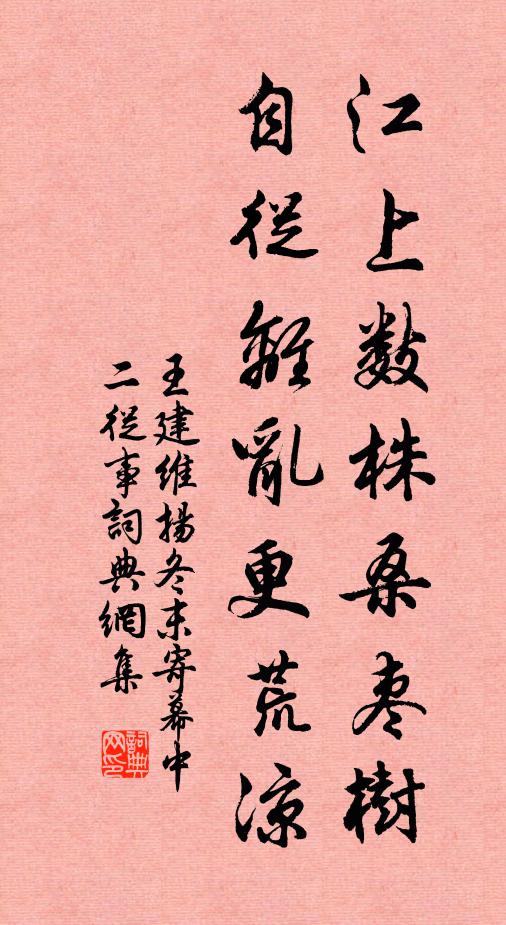 江上數株桑枣樹
自從離亂更荒涼
王建維揚冬末寄幕中
二從事詞典網集
詞典
网印